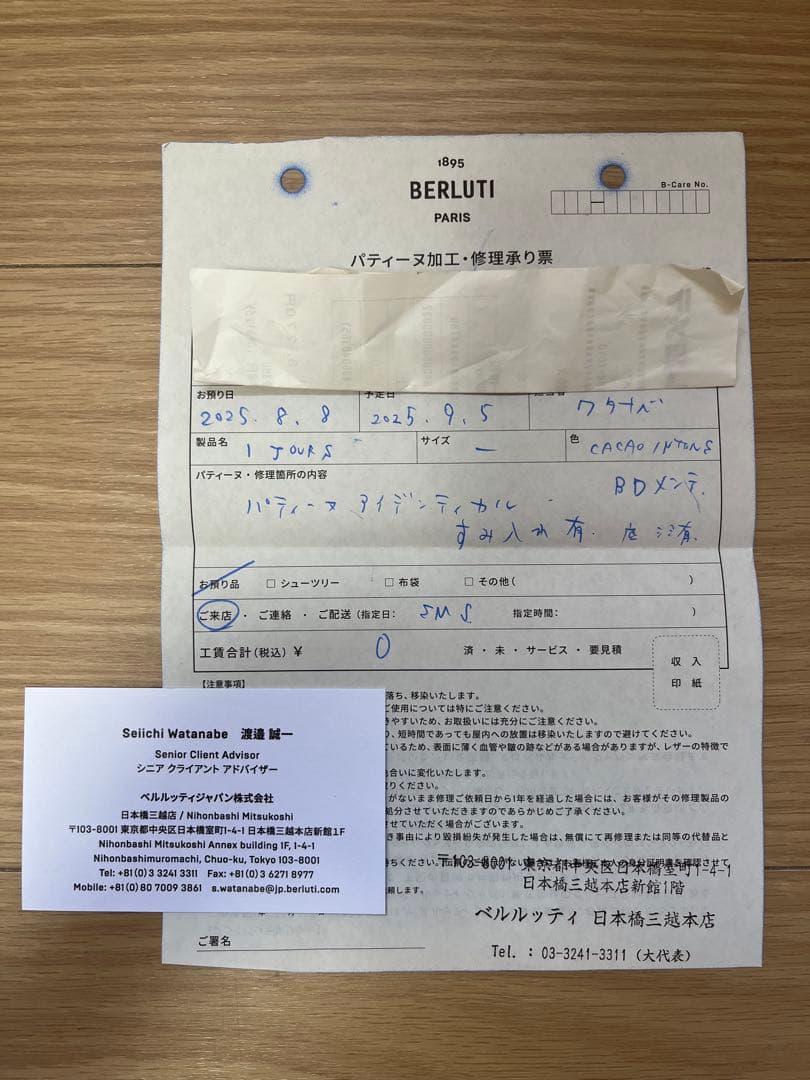 1895
BERLUTI
PARIS
B-Care No.
パティーヌ加工・修理承り票
お預り日
予定日
2025.8.8
2025.9.5
ワタナベ
製品名
1 JOURS
サイズ
—
色
CACAO INTENS
パティーヌ・修理箇所の内容
BDメンテ.
パティーヌ アイデンティカル
すみ入れ有.
お預り品
□ シューツリー
□ 布袋
□ その他(
)
ご来店 ・ ご連絡 ・ ご配送(指定日:
SMS
指定時間:
)
工賃合計(税込) ¥
0
済 ・ 未 ・ サービス ・ 要見積
収入
印紙
【注意事項】
落ち、移染いたします。
ご使用については特にご注意ください。
きやすいため、お取扱いには充分にご注意ください。
、短時間であっても屋内への放置は移染いたしますので避けてください。
ているため、表面に薄く血管や皺の跡などがある場合がありますが、レザーの特徴で
色合いに変化いたします。
取りください。
がないまま修理ご依頼日から1年を経過した場合には、お客様がその修理製品の
処分させていただきますのであらかじめご了承ください。
させていただく場合がございます。
き事由により毀損紛失が発生した場合は、無償にて再修理または同等の代替品と
頼します。
〒103-8001 東京都中央区日本橋室町1-4-1
日本橋三越本店新館1階
ベルルッティ 日本橋三越本店
Tel. : 03-3241-3311 (大代表)
ご署名
Seiichi Watanabe 渡邉 誠一
Senior Client Advisor
シニア クライアント アドバイザー
ベルルッティジャパン株式会社
日本橋三越店 / Nihonbashi Mitsukoshi
〒103-8001 東京都中央区日本橋室町1-4-1 日本橋三越本店新館1F
Nihonbashi Mitsukoshi Annex building 1F, 1-4-1
Nihonbashimuromachi, Chuo-ku, Tokyo 103-8001
Tel: +81(0)3 3241 3311 Fax: +81(0)3 6271 8977
Mobile: +81(0)80 7009 3861 s.watanabe@jp.berluti.com